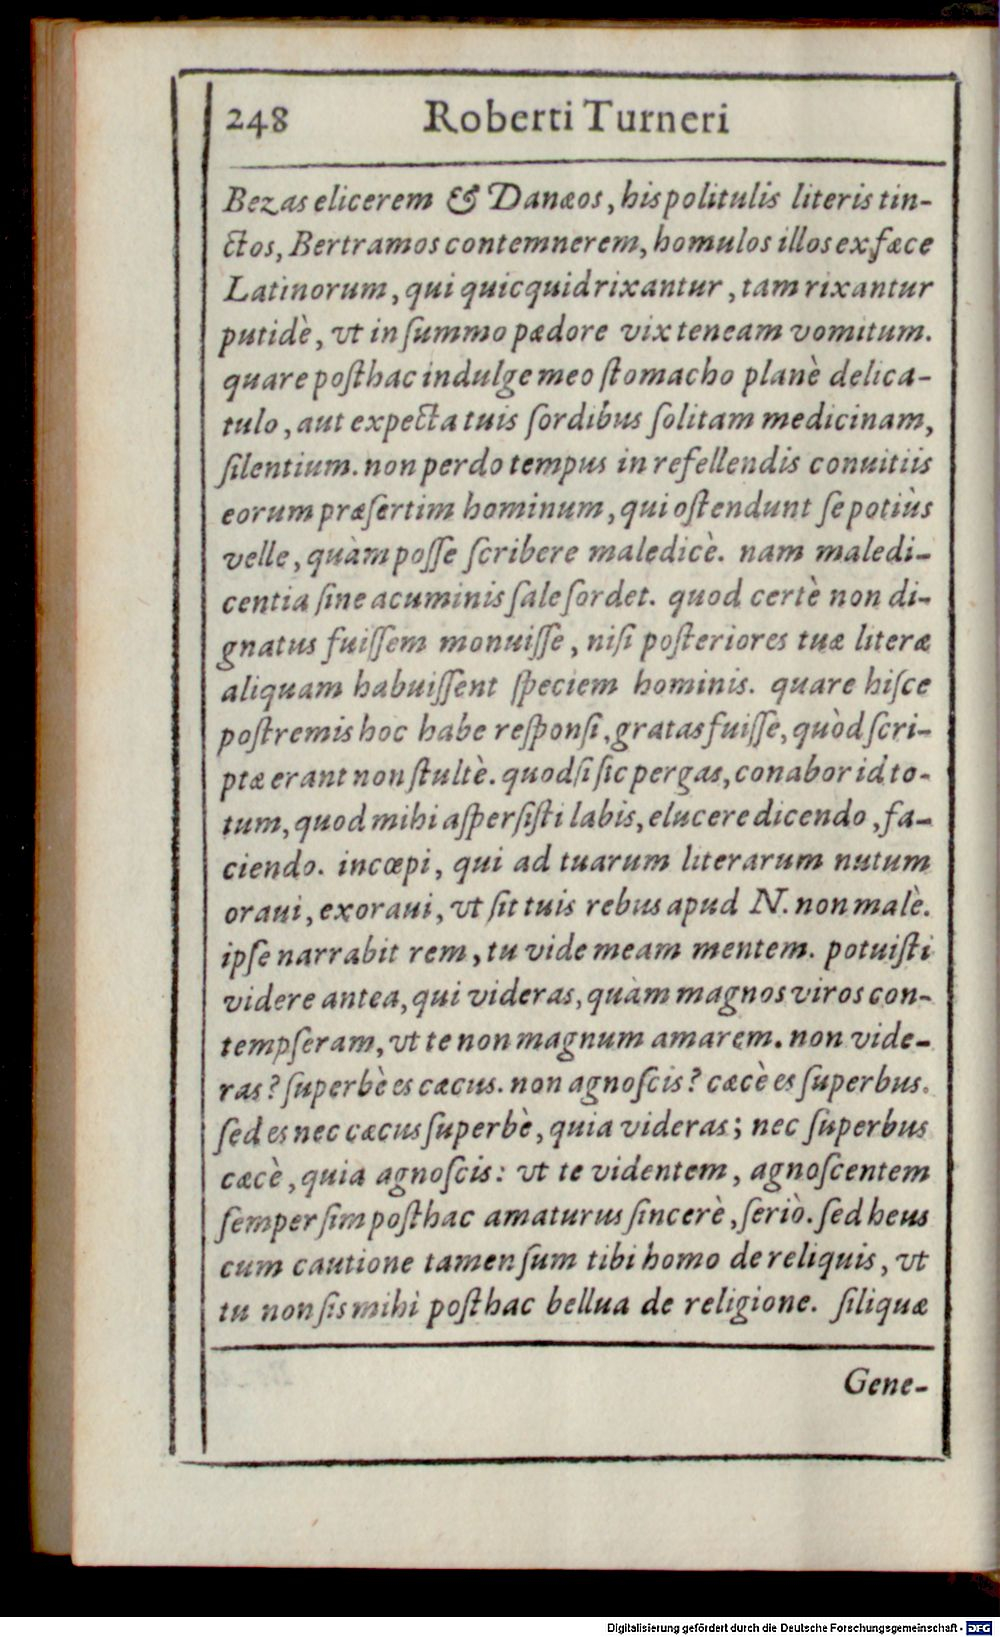 248 Roberti Turneri
Bezas elicerem & Danæos, his politulis literis tin-
ctos, Bertramos contemnerem, homulos illos ex fæce
Latinorum, qui quicquid rixantur, tam rixantur
putidè, vt in ſummo pædore vix teneam vomitum.
quare poſthac indulge meo ſtomacho planè delica-
tulo, aut expecta tuis ſordibus ſolitam medicinam,
ſilentium. non perdo tempus in refellendis conuitiis
eorum præſertim hominum, qui oſtendunt ſe potiùs
velle, quàm poſſe ſcribere maledicè. nam maledi-
centia ſine acuminis ſale ſordet. quod certè non di-
gnatus fuiſſem monuiſſe, niſi poſteriores tuæ literæ
aliquam habuiſſent ſpeciem hominis. quare hiſce
poſtremis hoc habe reſponſi, gratas fuiſſe, quòd ſcri-
ptæ erant non ſtultè. quodſi ſic pergas, conabor id to-
tum, quod mihi aſperſiſti labis, elucere dicendo, fa-
ciendo. incœpi, qui ad tuarum literarum nutum
oraui, exoraui, vt ſit tuis rebus apud N. non malè.
ipſe narrabit rem, tu vide meam mentem. potuiſti
videre antea, qui videras, quàm magnos viros con-
tempſeram, vt te non magnum amarem. non vide-
ras? ſuperbè es cæcus. non agnoſcis? cæcè es ſuperbus.
ſed es nec cæcus ſuperbè, quia videras; nec ſuperbus
cæcè, quia agnoſcis: vt te videntem, agnoſcentem
ſemper ſim poſthac amaturus ſincerè, ſeriò. ſed heus
cum cautione tamen ſum tibi homo de reliquis, vt
tu non ſis mihi poſthac bellua de religione. ſiliquæ
Gene-
Digitalisierung gefördert durch die Deutsche Forschungsgemeinschaft - DFG